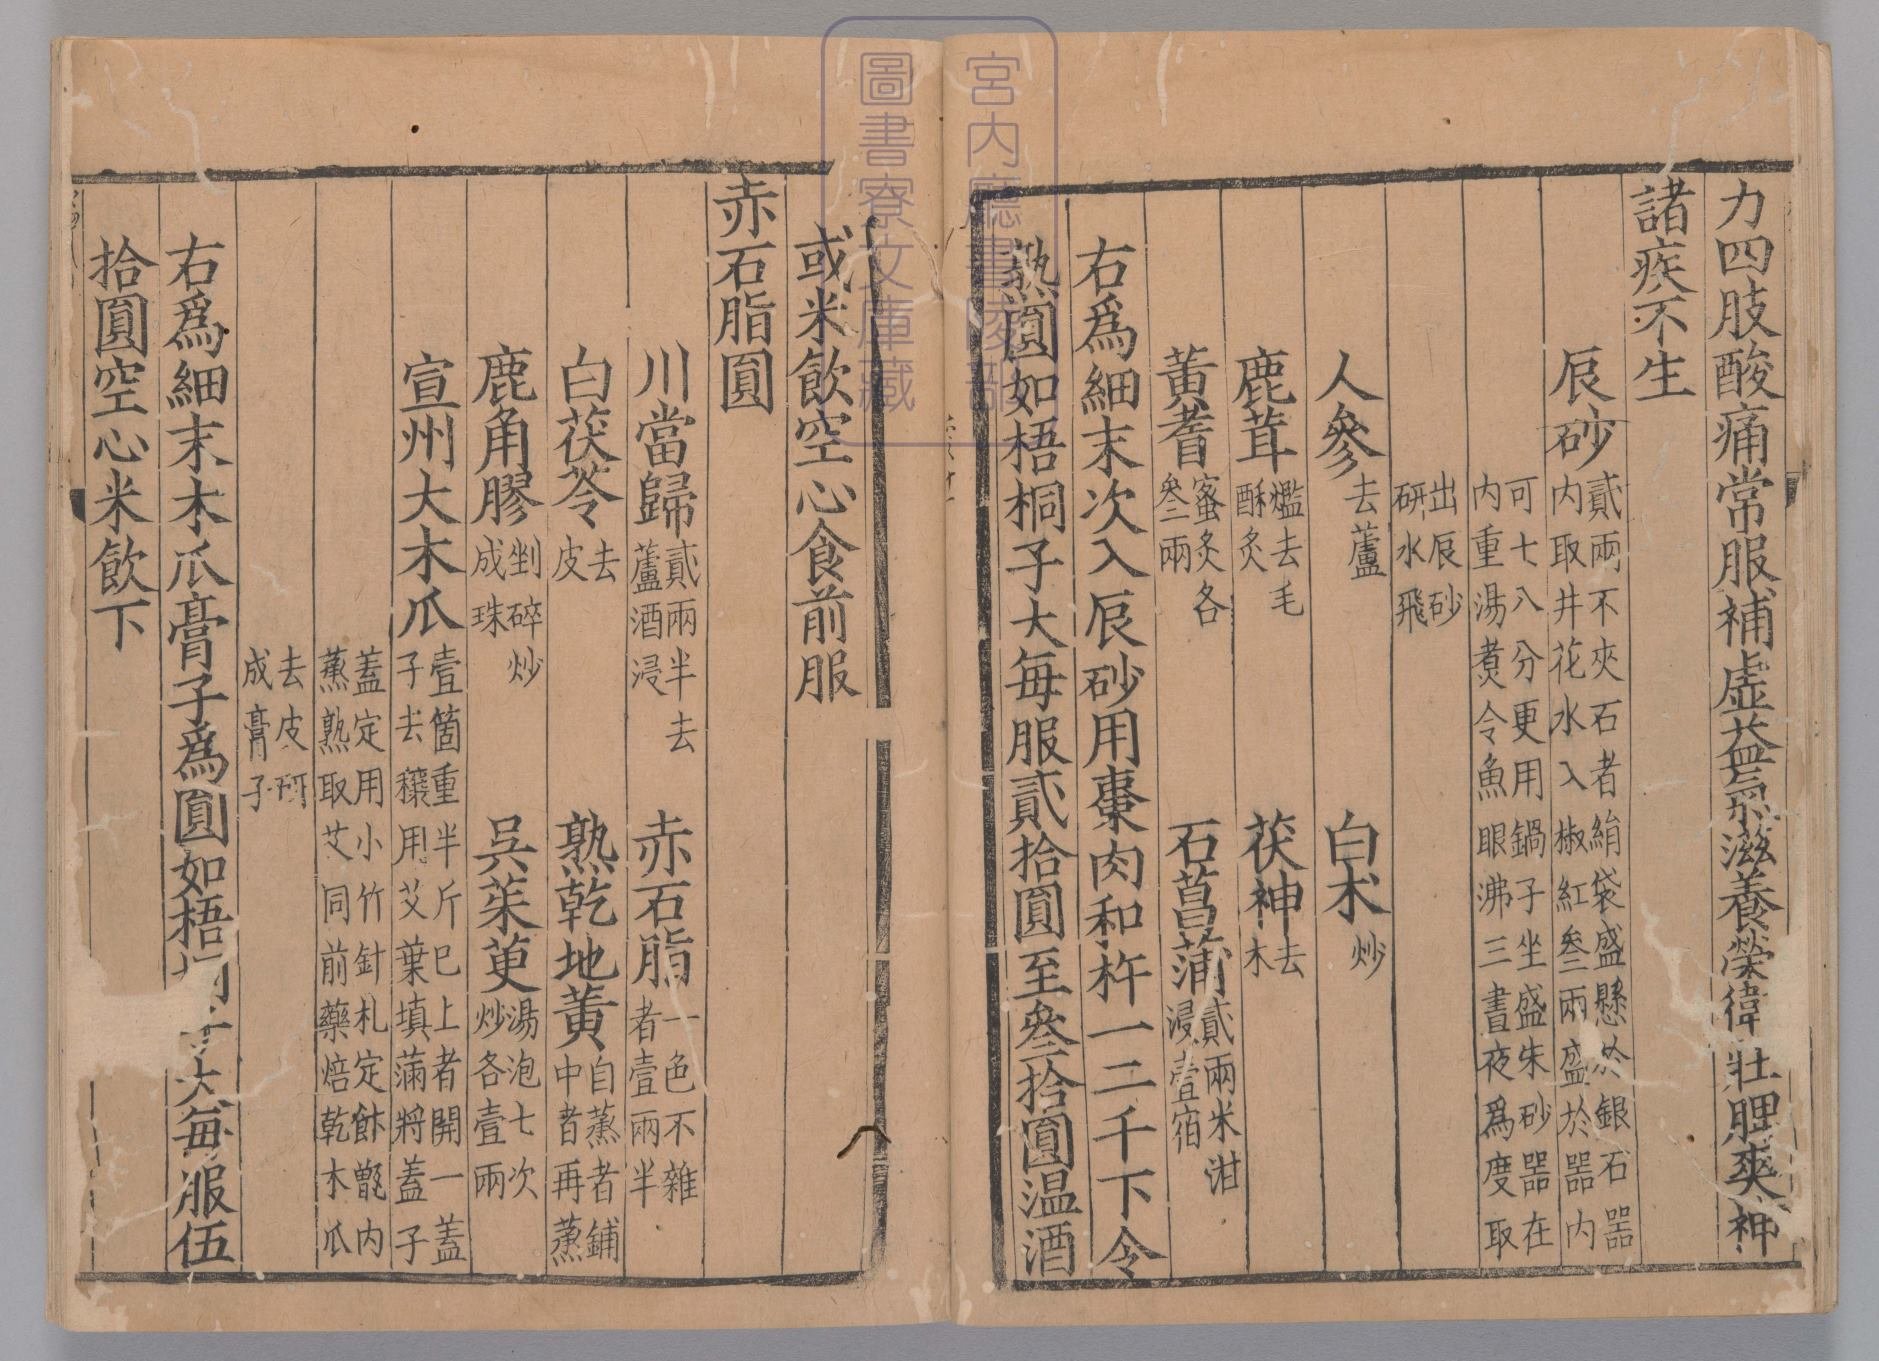 力四肢酸痛常服補虚益氣滋養榮衛壯脾爽神
諸疾不生
辰砂貳兩不夾石者絹袋盛懸於銀石器
内取井花水入椒紅叁兩盛於器内
可七八分更用鍋子坐盛朱砂器在
内重湯煑令魚眼沸三晝夜爲度取
出辰砂
研水飛
人參去蘆 白术炒
鹿茸爁去毛
酥炙 茯神去
木
黃耆蜜炙各
叁兩 石菖蒲貳兩米泔
浸壹宿
右爲細末次入辰砂用棗肉和杵一二千下令
熟圓如梧桐子大每服貳拾圓至叁拾圓温酒
或米飲空心食前服
赤石脂圓
川當歸貳兩半去
蘆酒浸 赤石脂一色不雜
者壹兩半
白茯苓去
皮 熟乾地黃自蒸者鋪
中者再蒸
鹿角膠剉碎炒
成珠 吳茱萸湯泡七次
炒各壹兩
宣州大木瓜壹箇重半斤已上者開一蓋
子去穰用艾葉填滿將蓋子
蓋定用小竹針札定飿甑内
蒸熟取艾同前藥焙乾木瓜
去皮研
成膏子
右爲細末木瓜膏子爲圓如梧大每服伍
拾圓空心米飲下
宮内廳書陵部
圖書寮文庫藏